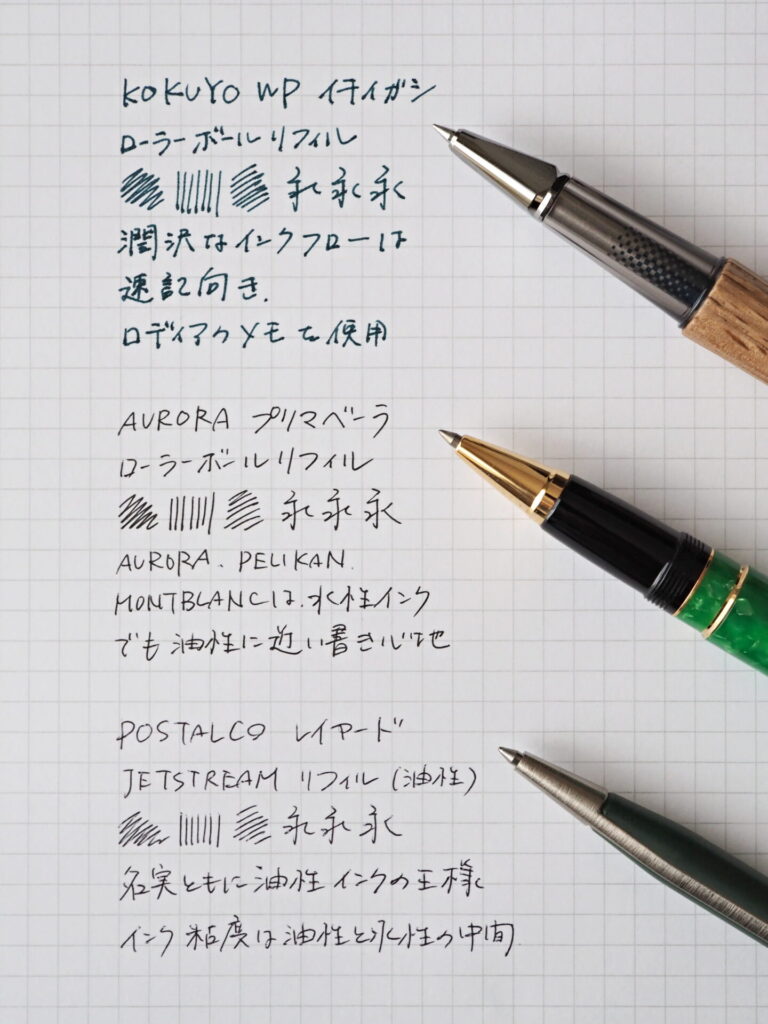 KOKUYO WP イチイガシ
ローラーボールリフィル
永永永
潤沢なインクフローは
速記向き.
ロディアのメモを使用
AURORA プリマベーラ
ローラーボールリフィル
永永永
AURORA. PELIKAN.
MONTBLANCは.水性インク
でも油性に近い書き心地
POSTALCO レイヤード
JETSTREAM リフィル(油性)
永永永
名実ともに油性インクの王様
インク粘度は油性と水性の中間.